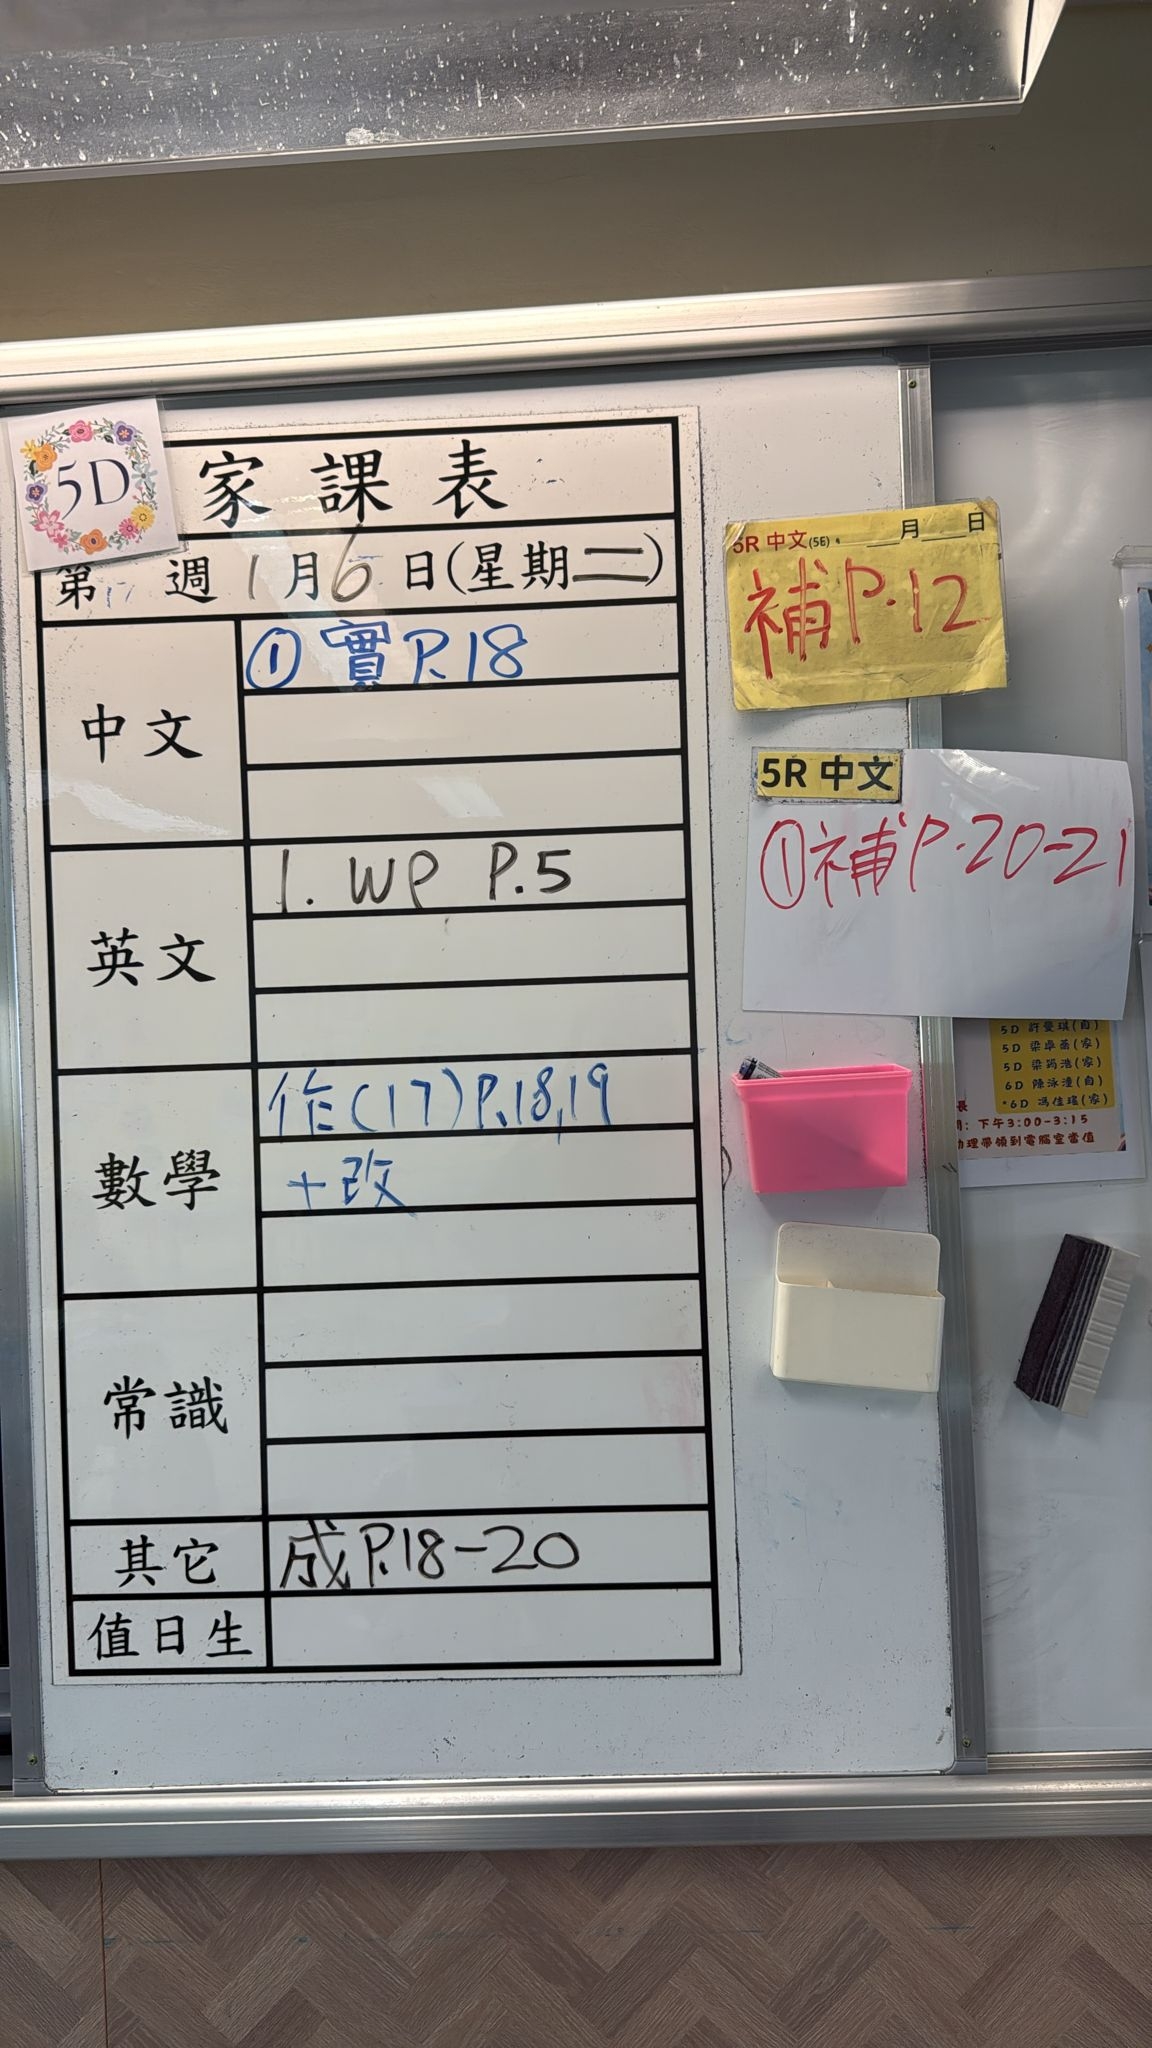 5D
家課表
第17週 1月6日(星期二)
中文
① 實 P.18
英文
1. WP P.5
數學
作(17)P.18,19
+改
常識
其它
成P.18-20
值日生
5R 中文(5E): 月 日
補P.12
5R 中文
①補P.20-21
5D 梁卓
5D 梁筠浩(家)
6D 陳泳潼(自)
*6D 馮佳瑤(家)
長
: 下午3:00-3:15
助理帶領到電腦室當值